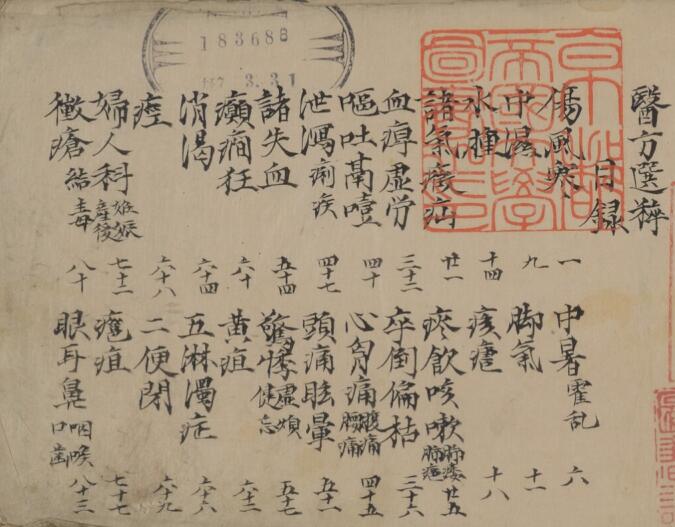 醫方選粹
目錄
傷風寒 一
中濕 九
水腫 十四
諸氣癥疝 廿一
血瘴虛労 三十二
嘔吐鬲噎 四十
泄瀉痢疾 四十七
諸失血 五十四
癲癇狂 六十
消渴 六十四
痙 六十八
婦人科 妊娠 産後 七十二
黴瘡結毒 八十
中暑霍乱 六
脚氣 十一
痎瘧 十八
痰飲咳嗽 肺痿 肺癰 廿五
卒倒偏枯 三十六
心胷痛 腹痛 腰痛 四十五
頭痛眩暈 五十一
驚悸 虛煩 健忘 五十七
黄疸 六十二
五淋濁症 六十六
二便閉 六十九
癰疽 七十七
眼耳鼻 咽喉 口歯 八十三
京都
帝國大學
圖書之印
183688
3.31